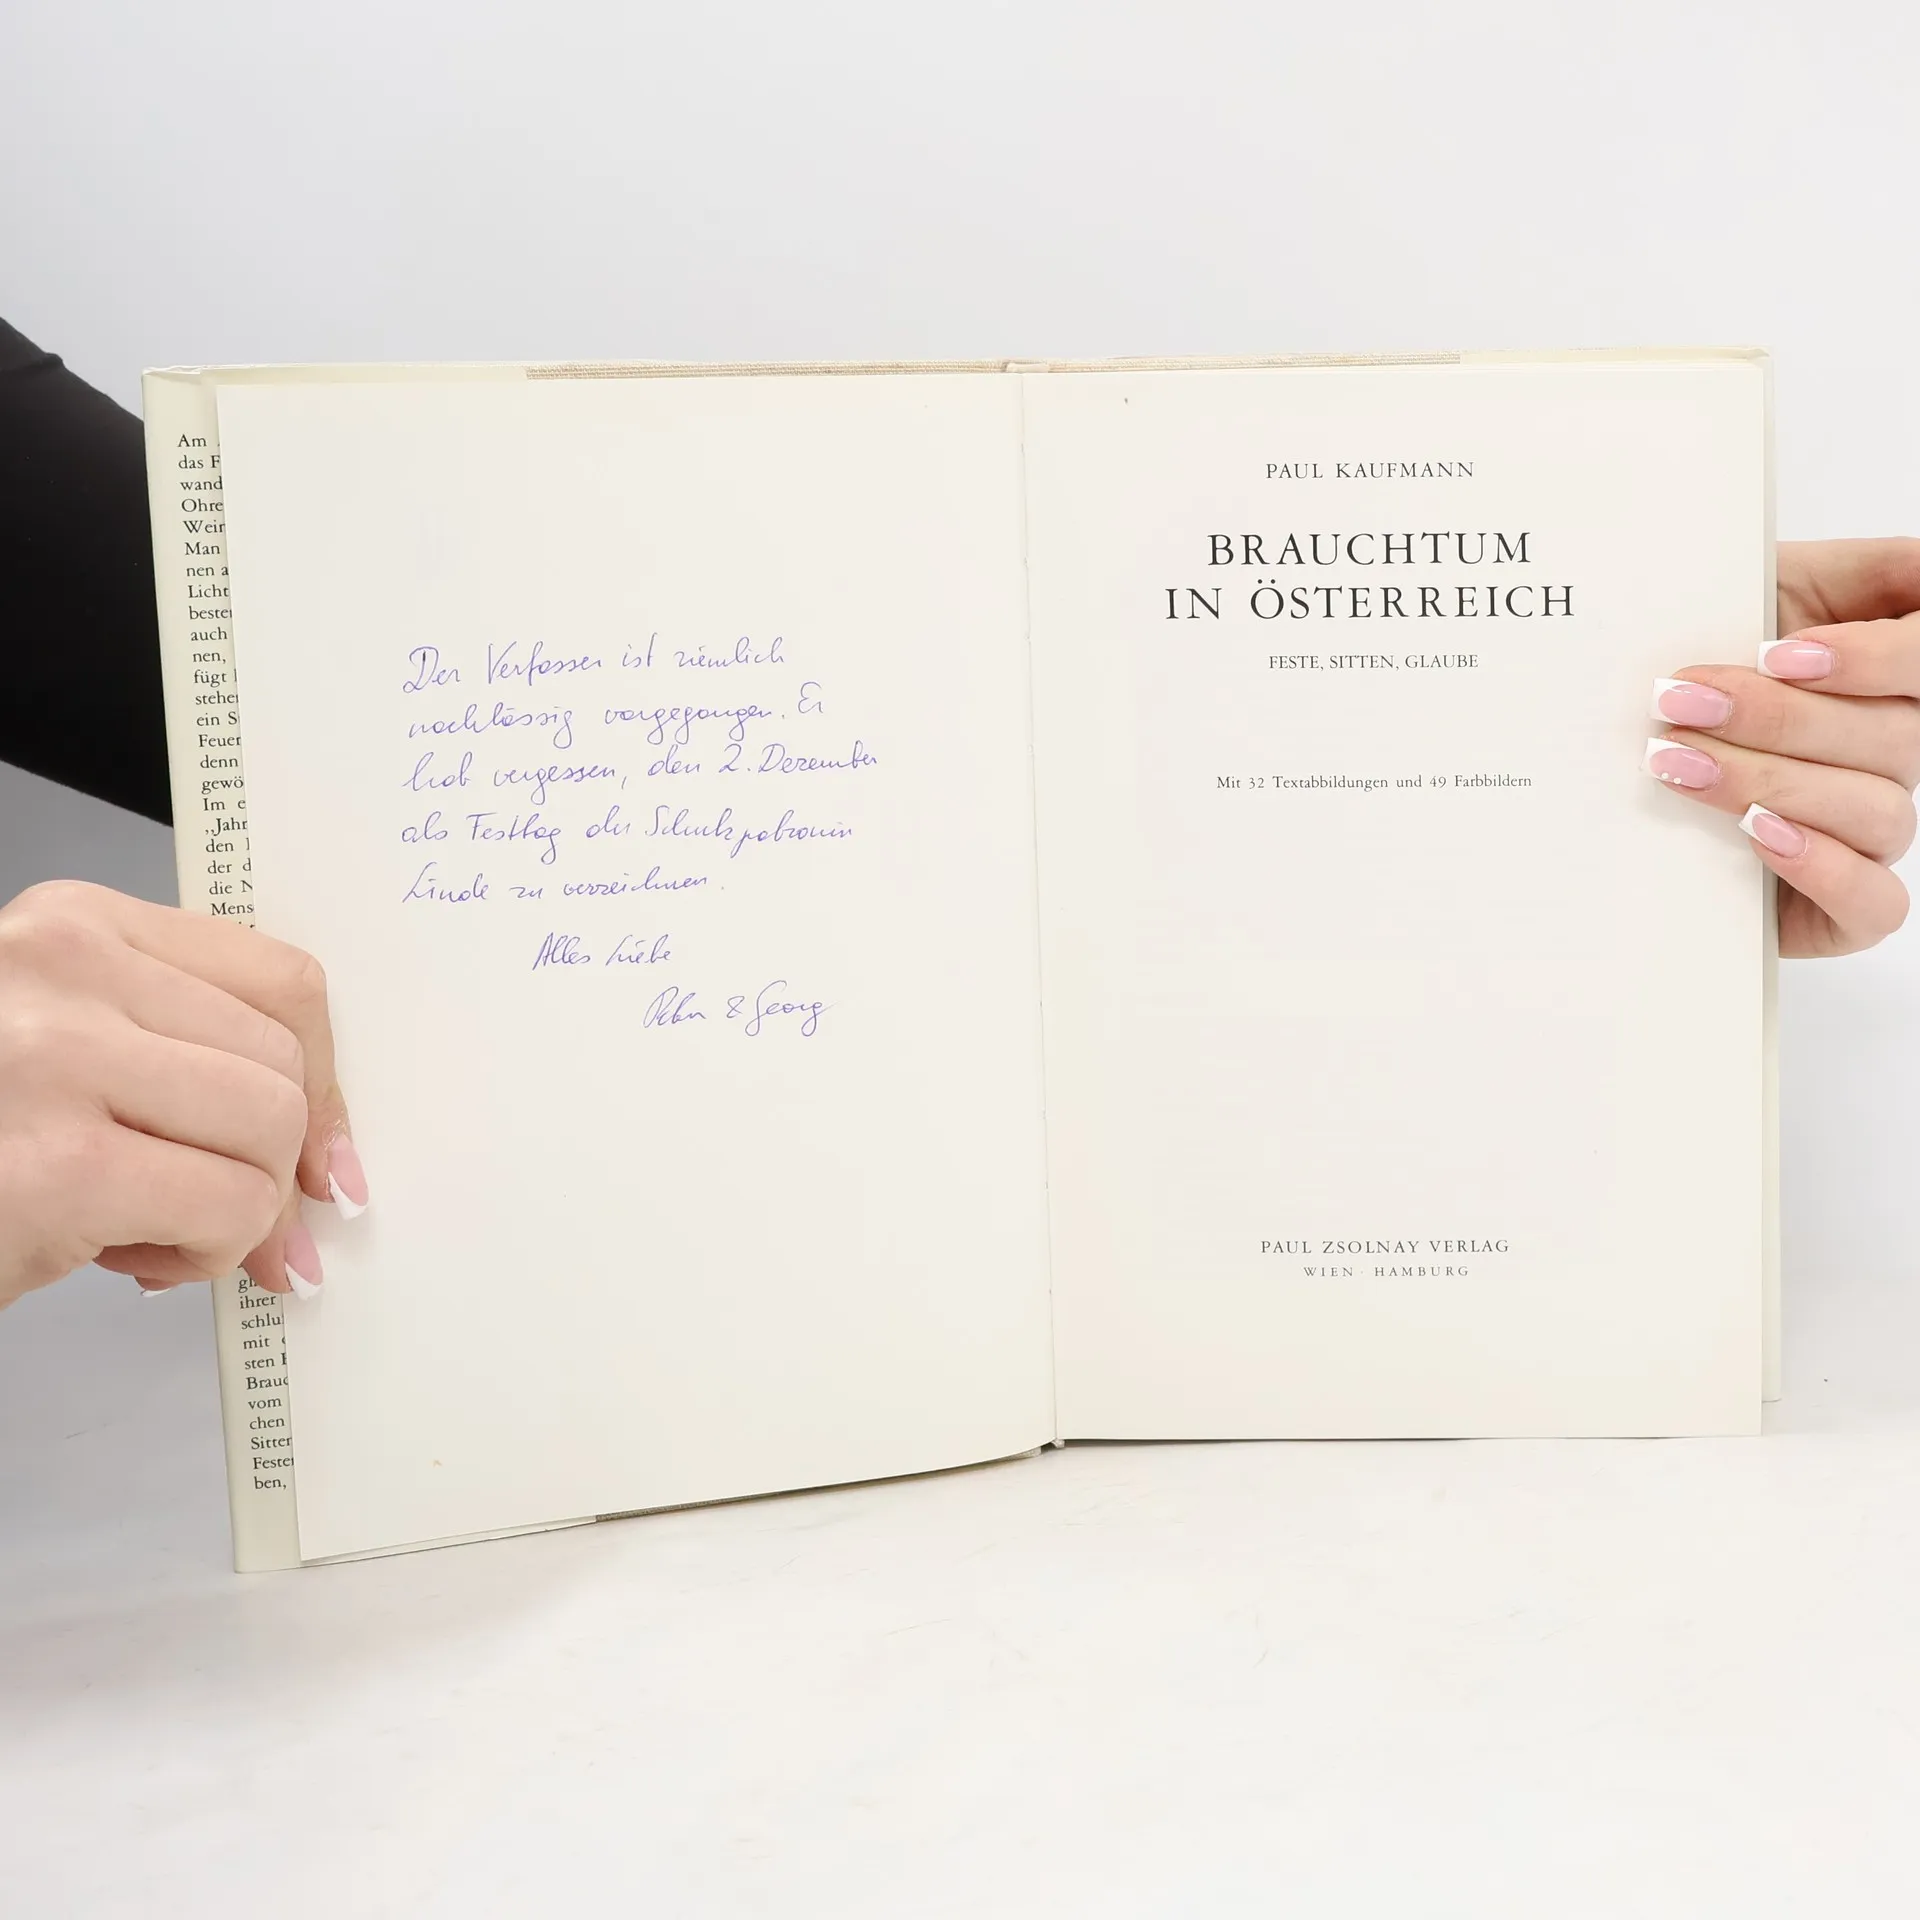 Am
das F
wand
Ohre
Wein
Man
nen a
Licht
beste
auch
nen,
fügt
stehe
ein S
Feuer
denn
gewö
Im e
„Jahr
den
der d
die N
Mens
gl
ihrer
schlu
mit
sten
Brauc
vom
chen
Sitten
Feste
ben,
Der Verfasser ist ziemlich
nachlässig vorgegangen. Er
hat vergessen, den 2. Dezember
als Festtag der Schutzpatronin
Linde zu verzeichnen.
Alles Liebe
& Georg
PAUL KAUFMANN
BRAUCHTUM
IN ÖSTERREICH
FESTE, SITTEN, GLAUBE
Mit 32 Textabbildungen und 49 Farbbildern
PAUL ZSOLNAY VERLAG
WIEN · HAMBURG